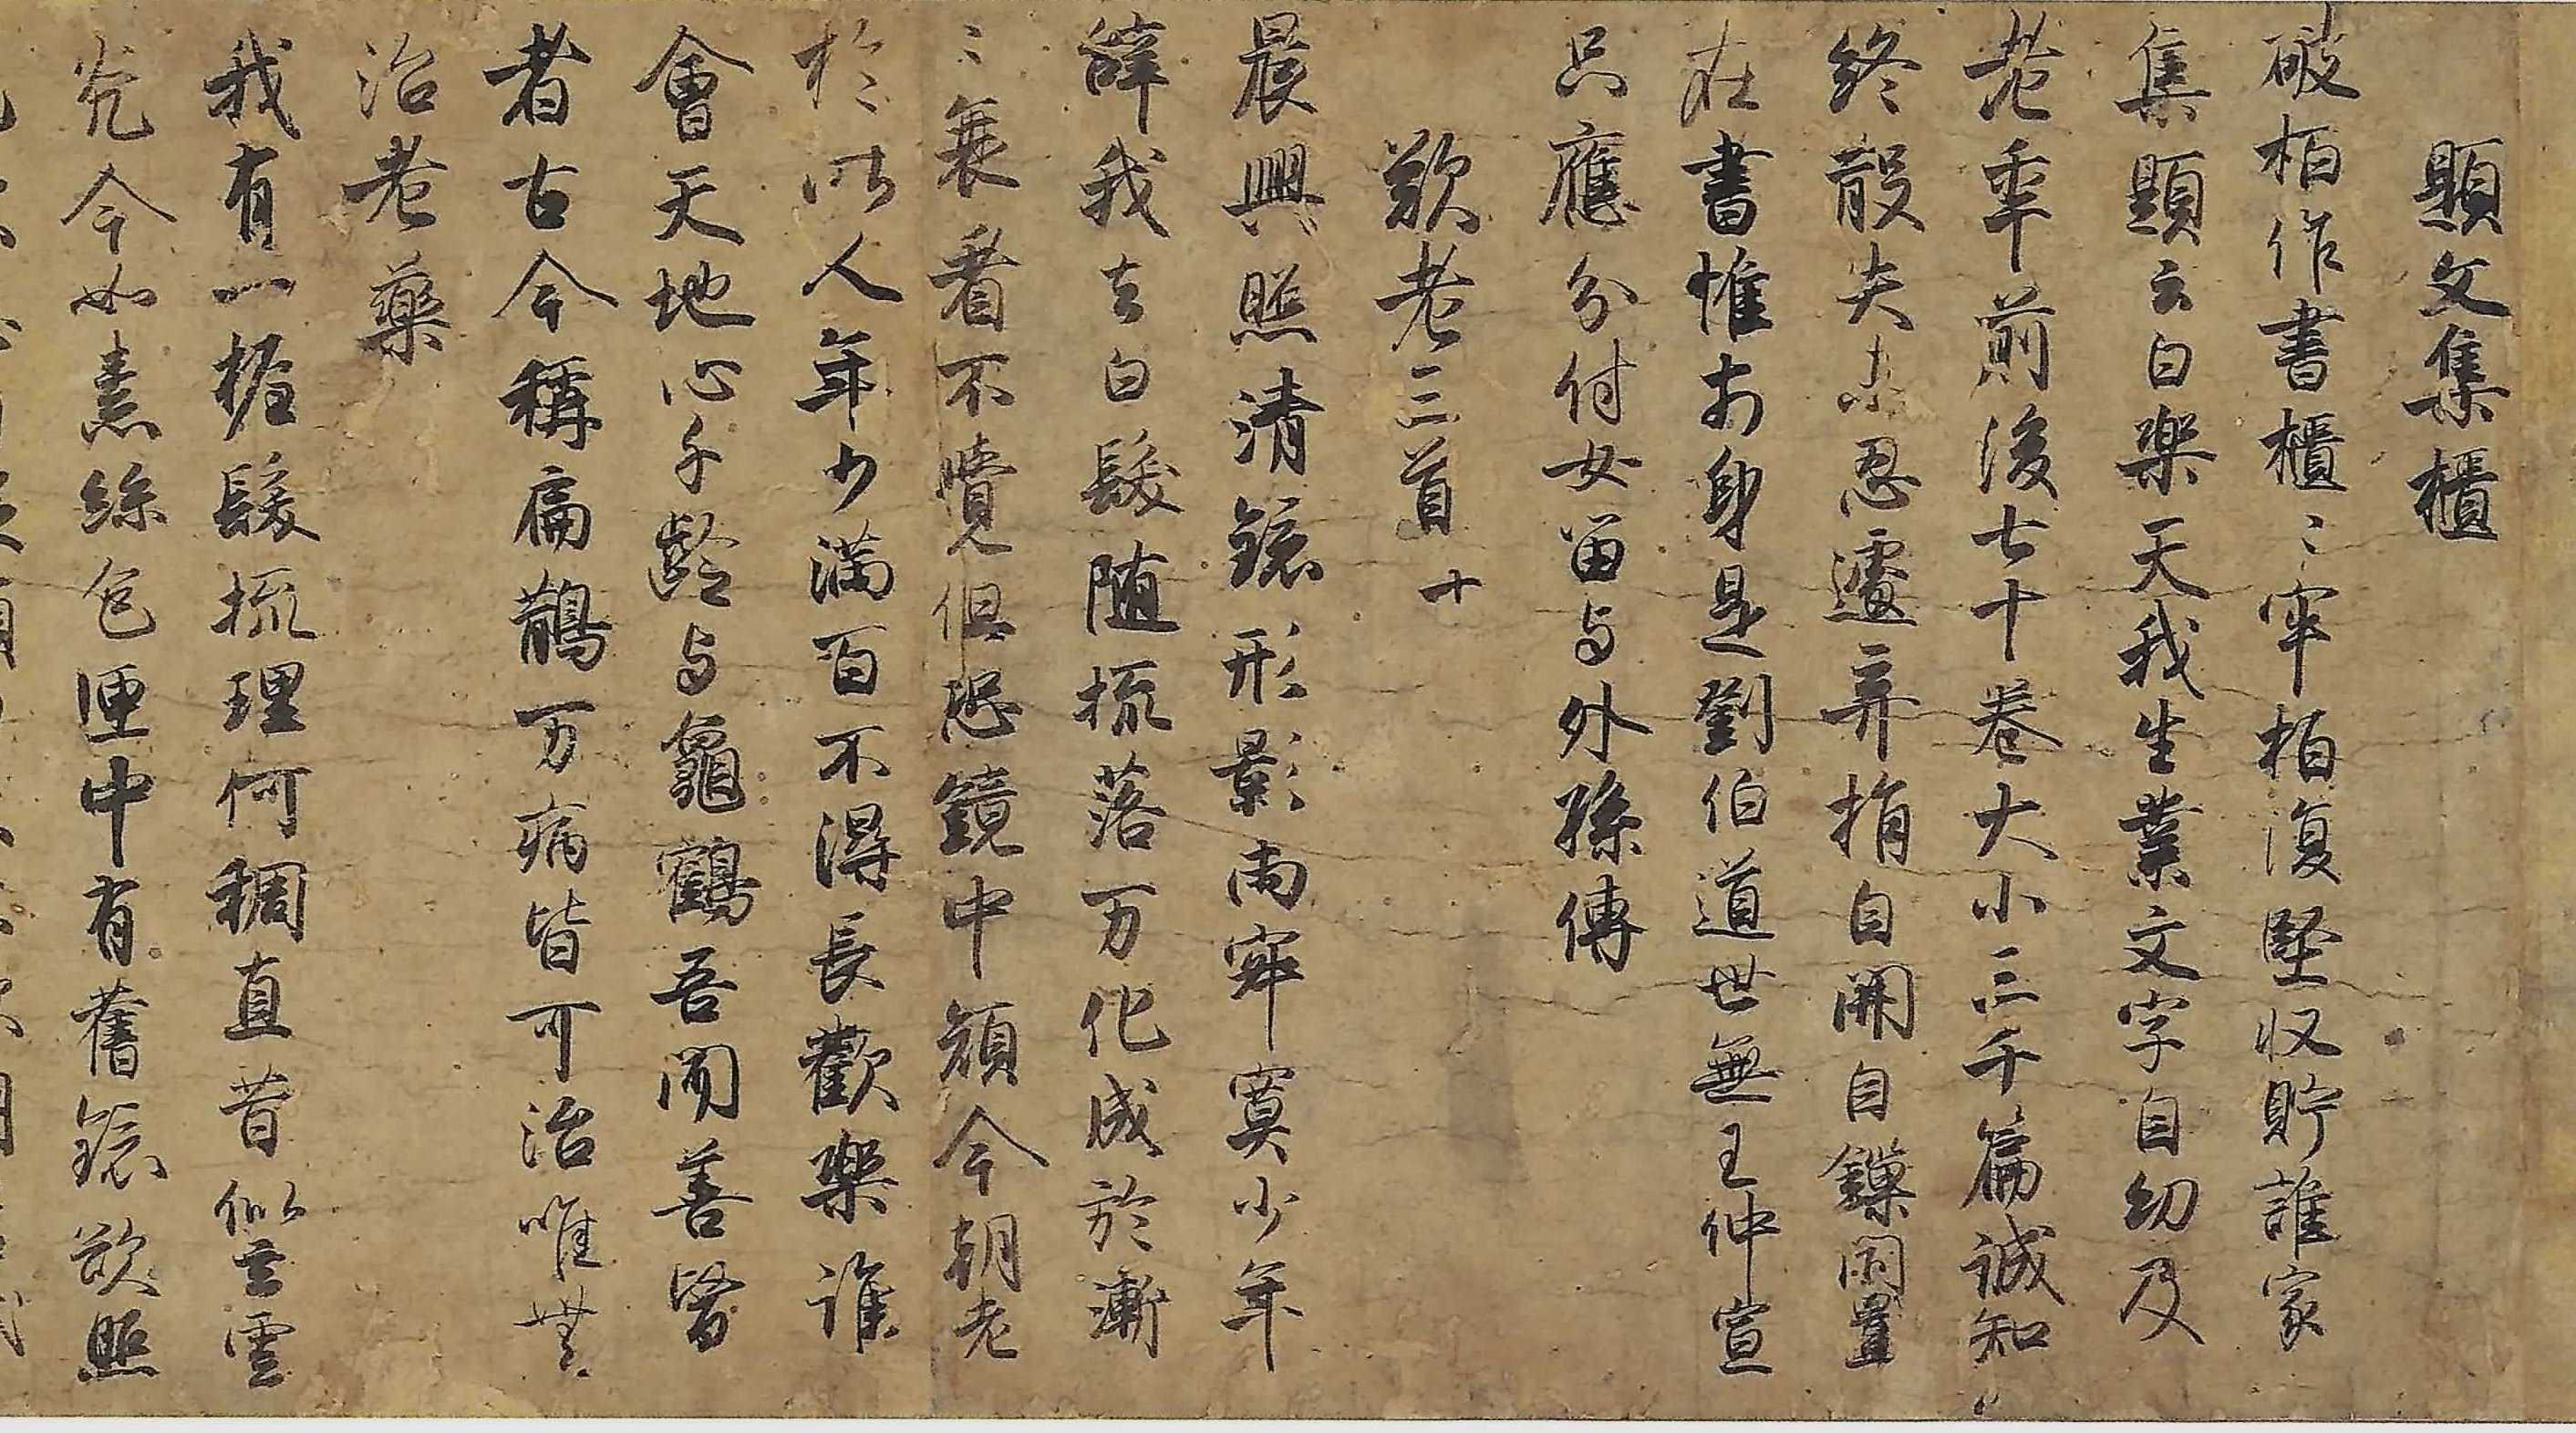 題文集櫃
破栢作書櫃〻牢栢復堅収貯誰家
集題云白楽天我生業文字自幼及
老年前後七十巻大小三千篇誠知
終散失未忍遽弃捐自開自鏁閇置
在書帷前身是劉伯道世無王仲宣
只應分付女留与外孫傳
歎老三首
晨興照清鏡形影両寂寞少年
辞我去白髮随梳落万化成於漸
〻衰看不覺但恐鏡中顔今朝老
於昨人年少満百不得長歡楽誰
會天地心千齡与龜鶴吾聞善醫
者古今稱扁鵲万病皆可治唯無
治老藥
我有一握髮梳理何稠直昔似玄雲
光今如素絲色匣中有舊鏡欲照